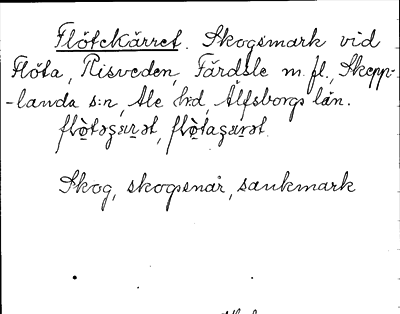 Flötekärret. Skogsmark vid
Flöta, Risveden, Färdsle m. fl., Skepp-
-landa s:n, Ale hd, Älfsborgs län.
Skog, skogsnär, sankmark